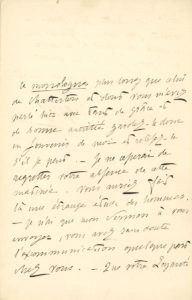 Ce monologue plus long que celui
de Chatterton et dont vous m'avez
parlé avec une tant de grâce et
de bonne amitié gardez-le donc
en souvenir de moi et relisez-le
s'il se peut. — Je ne cesserai de
regretter votre absence de cette
matinée. Vous auriez fait
là une étrange étude des hommes.
— je n'ai que mon sermon à vous
envoyer, vous avez sans doute
l'excommunication quelque part
chez vous. — Que votre